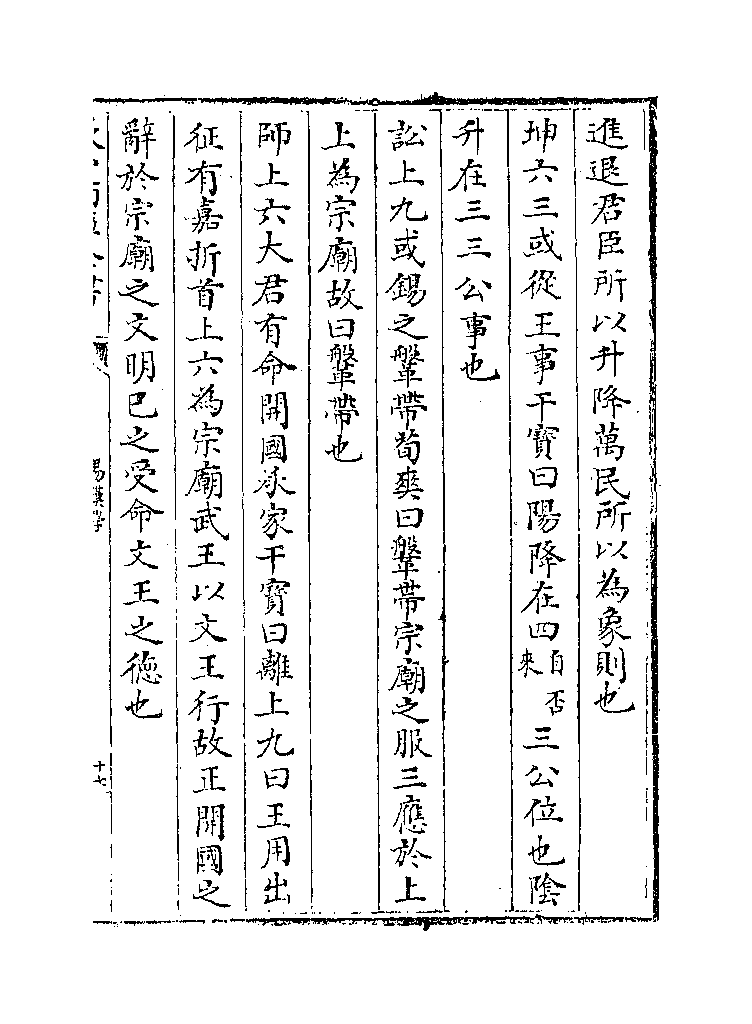 進退君臣所以升降萬民所以為象則也
坤六三或從王事干寶曰陽降在四自否來三公位也隂
升在三三公事也
訟上九或錫之鞶帶荀爽曰鞶帶宗廟之服三應於上
上為宗廟故曰鞶帶也
師上六大君有命開國承家干寶曰離上九曰王用出
征有嘉折首上六為宗廟武王以文王行故正開國之
辭於宗廟之文明巳之受命文王之德也
易漢學
十七